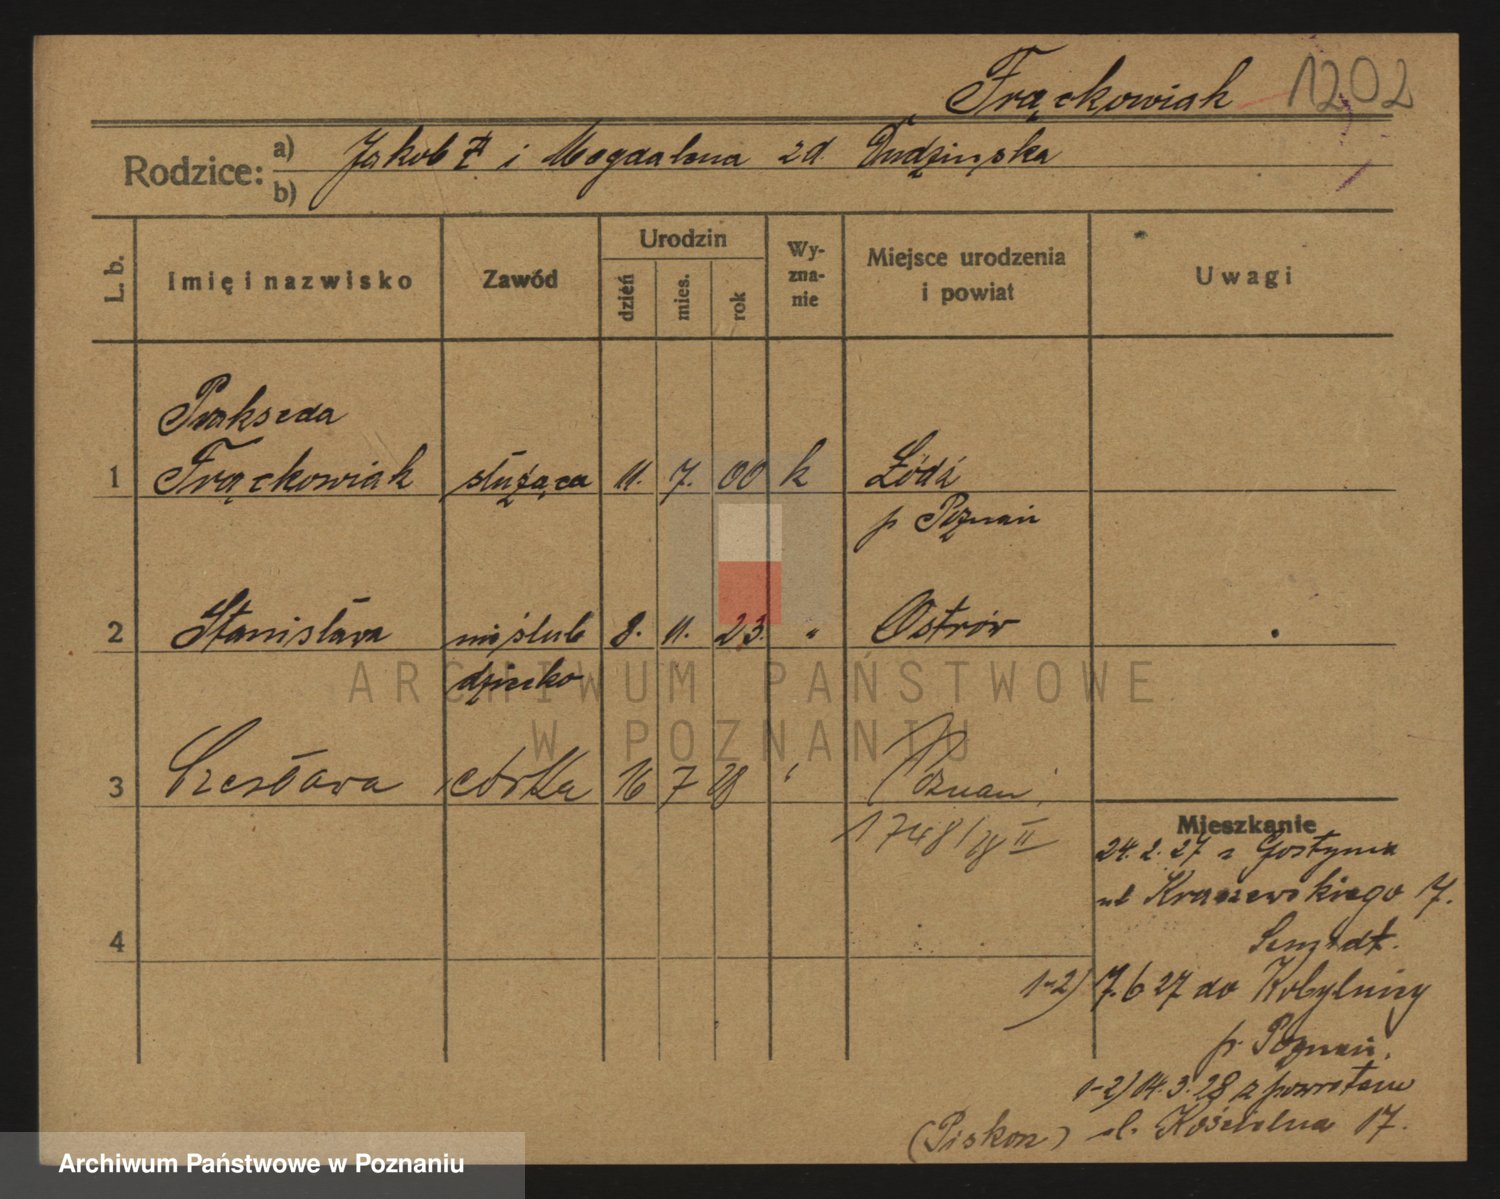 Frąckowiak 1202
Rodzice: a) Jakob i Magdalena zd. Dudzińska
b)
L. b.
Imię i nazwisko
Zawód
Urodzin
dzień
mies.
rok
Wy-
zna-
nie
Miejsce urodzenia
i powiat
Uwagi
Prakseda
1 Frąckowiak służąca 11. 7. 00 k Łódź
p Poznań
2 Stanisława nieślub 8. 11. 23. " Ostrów
dziecko
3 Czesława córka 16 7 28 " Poznań
1748/28 II
4
Mieszkanie
24. 2. 27 z Gostynia
ul Kraszewskiego 17.
1-2) 7. 6 27 do Kobylnicy
p. Poznań.
1-2) 14. 3. 28 z powrotem
(Piskon) ul. Kościelna 17.
ARCHIWUM PAŃSTWOWE
W POZNANIU
Archiwum Państwowe w Poznaniu